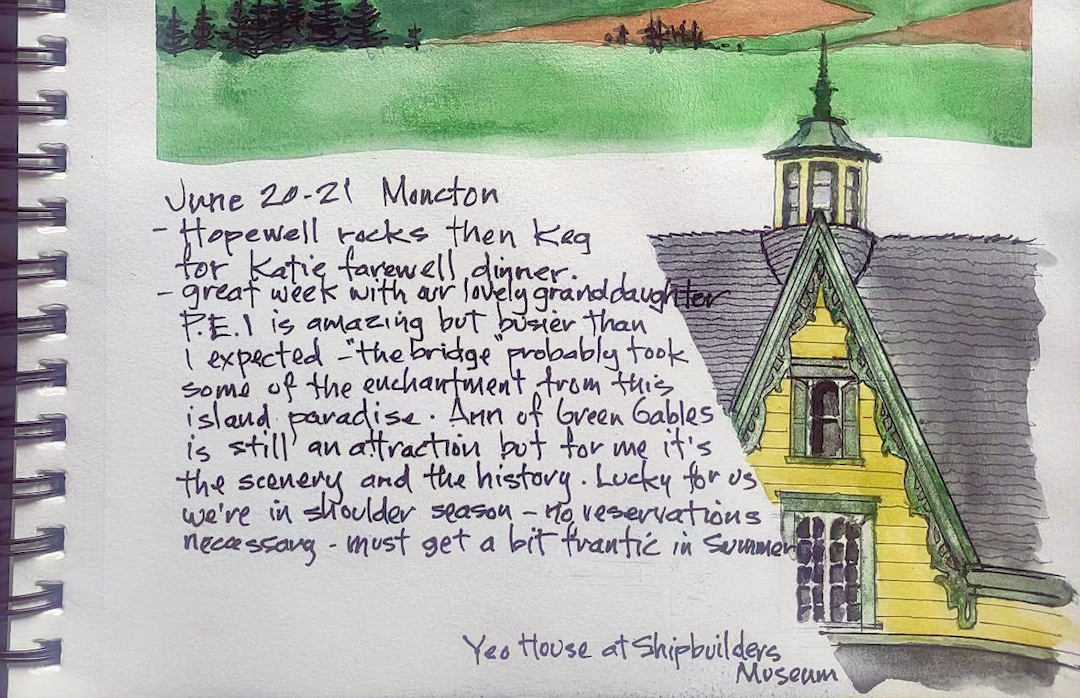 June 20-21 Moncton
- Hopewell rocks then Keg
for Katie farewell dinner.
- great week with our lovely granddaughter
P.E.I is amazing but busier than
I expected - "the bridge" probably took
some of the enchantment from this
island paradise. Ann of Green Gables
is still an attraction but for me it's
the scenery and the history. Lucky for us
we're in shoulder season - no reservations
necessary - must get a bit frantic in Summer
Yeo House at Shipbuilders
Museum